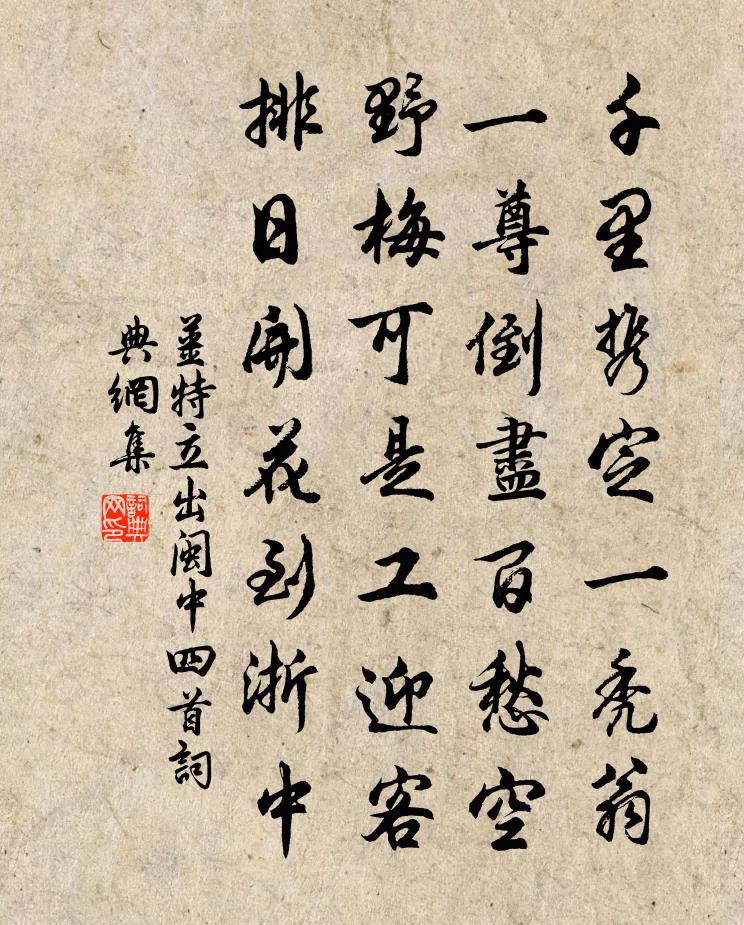 千里携定一秃翁
一尊倒盡百愁空
野梅可是工迎客
排日開花到浙中
薑特立出閩中四首詞
典網集
詞典
网印